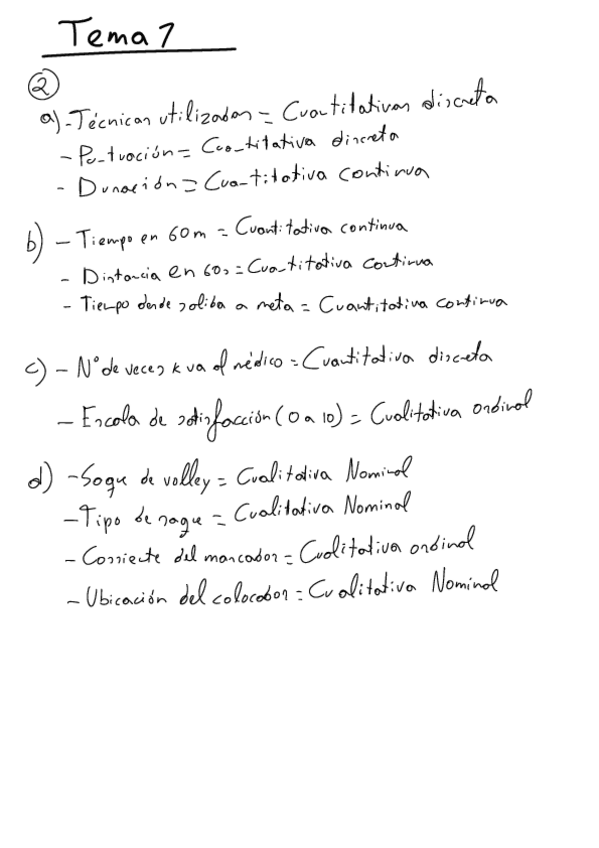 Tema 7
②
a) - Técnicas utilizadas = Cuantitativas discreta
- Puntuación = Cuantitativa discreta
- Duración = Cuantitativa continua
b) - Tiempo en 60 m = Cuantitativa continua
- Distancia en 60s = Cuantitativa continua
- Tiempo desde salida a meta = Cuantitativa continua
c) - Nº de veces k va al médico = Cuantitativa discreta
- Escala de satisfacción (0 a 10) = Cualitativa ordinal
d) - Saque de volley = Cualitativa Nominal
- Tipo de saque = Cualitativa Nominal
- del marcador = Cualitativa ordinal
- Ubicación del colocador = Cualitativa Nominal